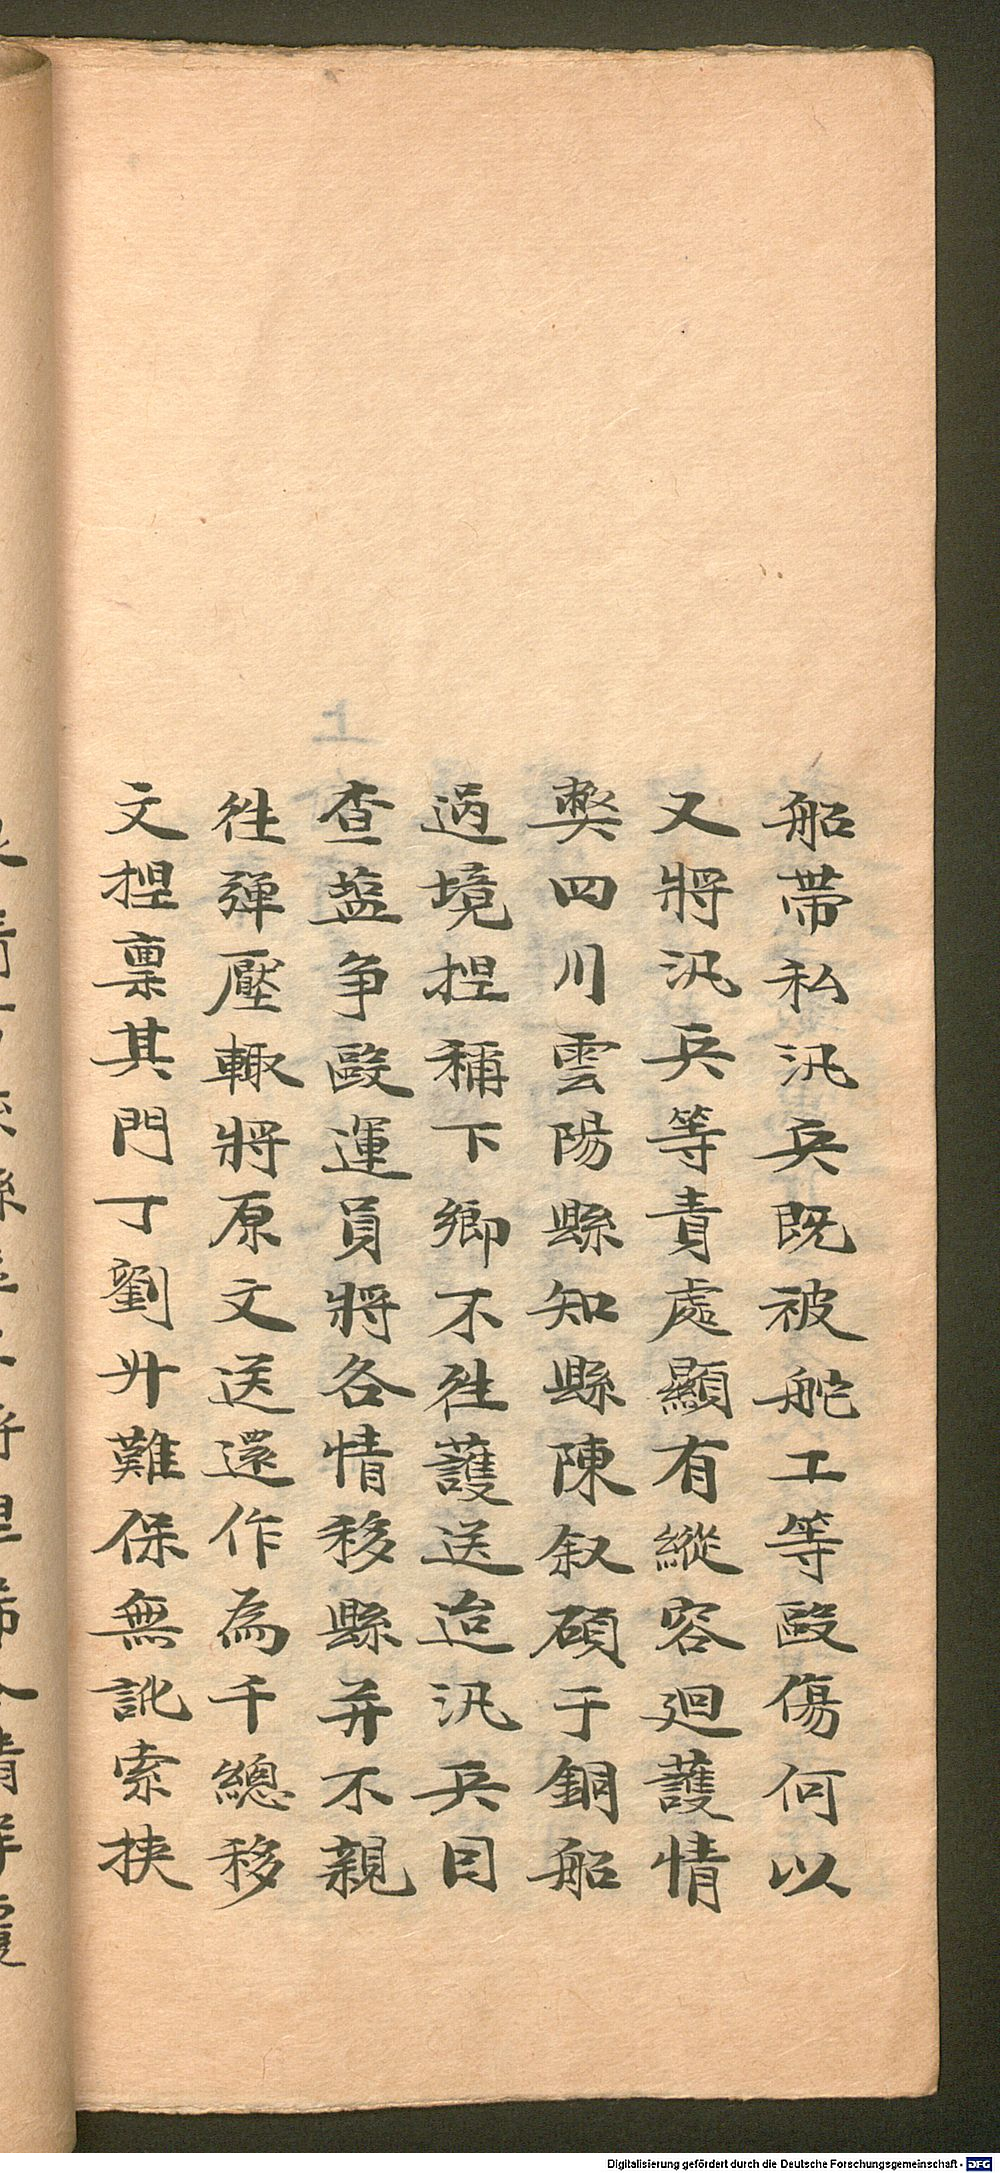 船帶私汛兵既被舵工等毆傷何以
又將汛兵等責處顯有縱容迴護情
獘四川雲陽縣知縣陳叙碩于銅船
過境捏稱下鄉不徃護送迨汛兵目
查盐争毆運員將各情移縣并不親
徃彈壓輙將原文送還作為千總移
文捏稟其門丁劉升難保無訛索挟
Digitalisierung gefördert durch die Deutsche Forschungsgemeinschaft - DFG